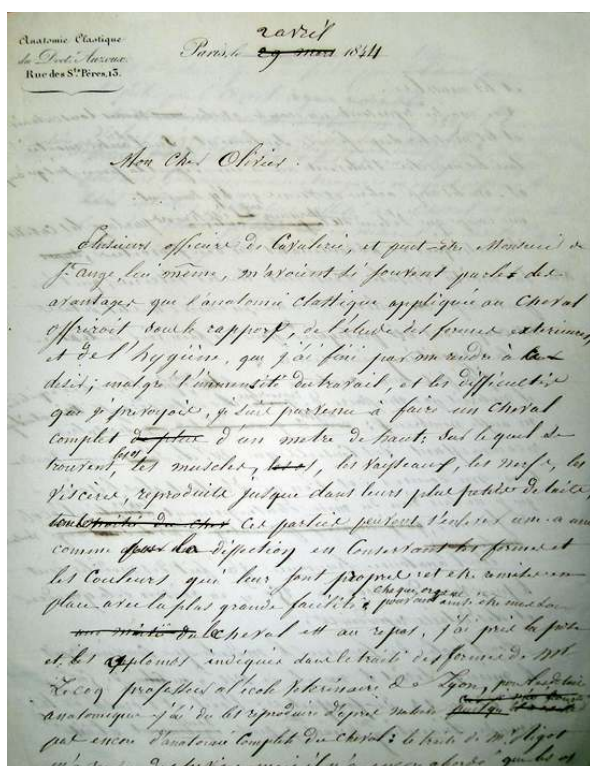 Anatomie Clastique
du Doct.r Auzoux.
Rue des Sts Pères, 13.
2 avril
Paris, le 29 mars 1844
Mon cher Olivier.
Plusieurs officiers de Cavalerie, et peut-etre Monsieur de
St ange, lui même, m'avoient si souvent parlé des
avantages que l'anatomie clastique appliquée au Cheval
offriroit sous le rapport, de l'étude des formes exterieures
et de l'hygiène, que j'ai fini par me rendre à
desir; malgré l'immensité du travail, et les difficultés
que je prevoyois, je suis parvenu à faire un Cheval
complet de plus d'un metre de haut: sur lequel se
trouvent, tous les muscles, les vaisseaux, les nerfs, les
viscères, reproduits jusque dans leurs plus petits details,
Ces parties peuvent s'enlever une a une
comme pour la dissection en Conservant les formes et
les Couleurs qui leur sont propres et etre remises en
place avec la plus grande facilité chaque organe pouvant
le cheval est au repos, j'ai pris la pose
et les aplombs indiqués dans le traité des formes de Mr
Lecoq professeur a l'école veterinaire de Lyon,
anatomique j'ai du les reproduire d'après nature
pas encore d'anatomie Complete du Cheval: le traité de Mr Rigot